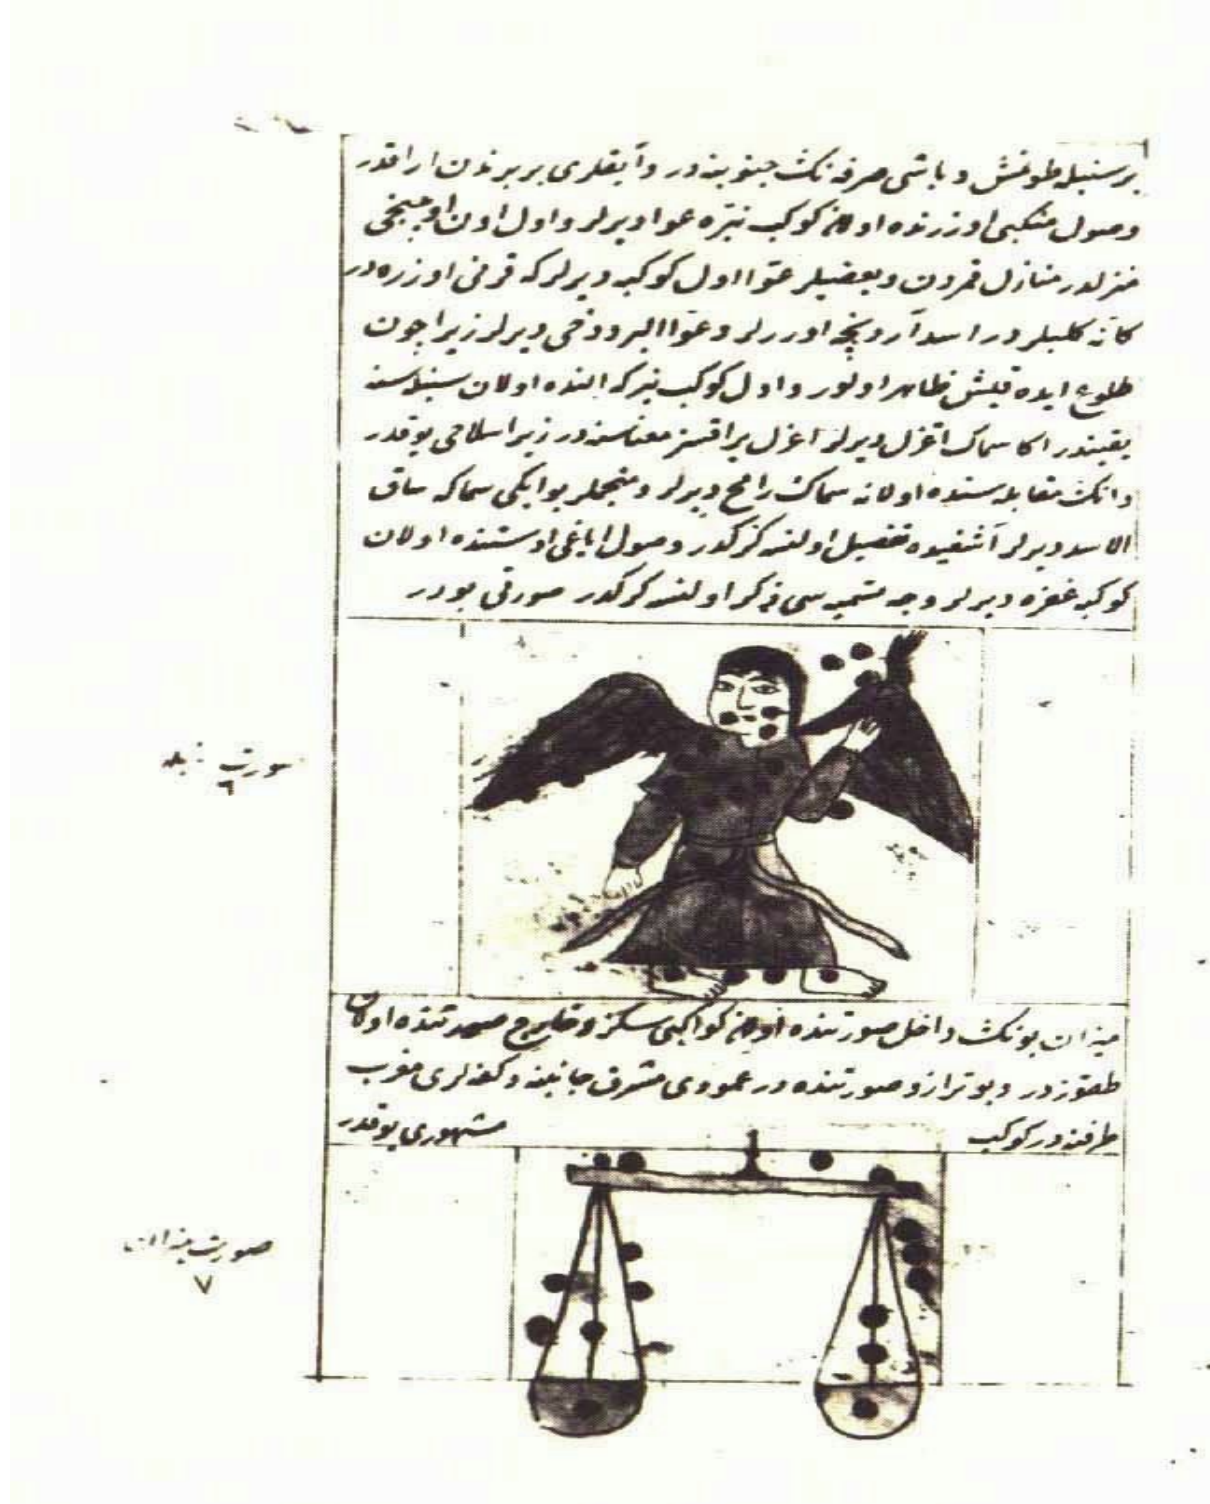 بر سنبله طوتمش و باشى صرفه نك جنوبنده در و آيقلرى بربرندن اراقدر
و صول منكبى اوزرنده اولان كوكب نيره عوا ديرلر و اول اون اوچنجى
منزلدر منازل قمردن و بعضيلر عوا اول كوكبه ديرلر كه قرنى اوزره در
كانه كلبلر در اسد آردنجه اورر لر و عوا البرد دخى ديرلر زيرا چون
طلوع ايده قيش ظاهر اولور و اول كوكب نير كه النده اولان سنبله سنه
يقيندر اكا سماك اعزل ديرلر اعزل يراقسز معناسنه در زيرا سلاحى يوقدر
و انك مقابله سنده اولانه سماك رامح ديرلر و منجملر بو ايكى سماكه ساق
الاسد ديرلر آشغيده تفصيل اولنسه كركدر و صول اياغى اوستنده اولان
كوكبه غفره ديرلر وجه تسميه سى ذكر اولنسه كركدر صورتى بودر
صورت سنبله
٦
ميزان بونك داخل صورتنده اولان كواكبى سكز و خارج صورتنده اولان
طقوزدر و بو ترازو صورتنده در عمودى مشرق جانبنه و كفه لرى مغرب
طرفنه در كوكب مشهورى يوقدر
صورت ميزان
٧